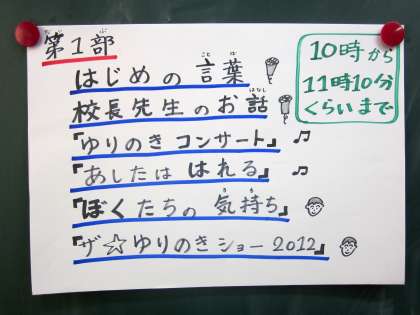 第1部
はじめの言葉
校長先生のお話
『ゆりのき コンサート』
『あしたは はれる』
『ぼくたちの 気持ち』
『ザ☆ゆりのきショー2012』
10時から
11時10分
くらいまで